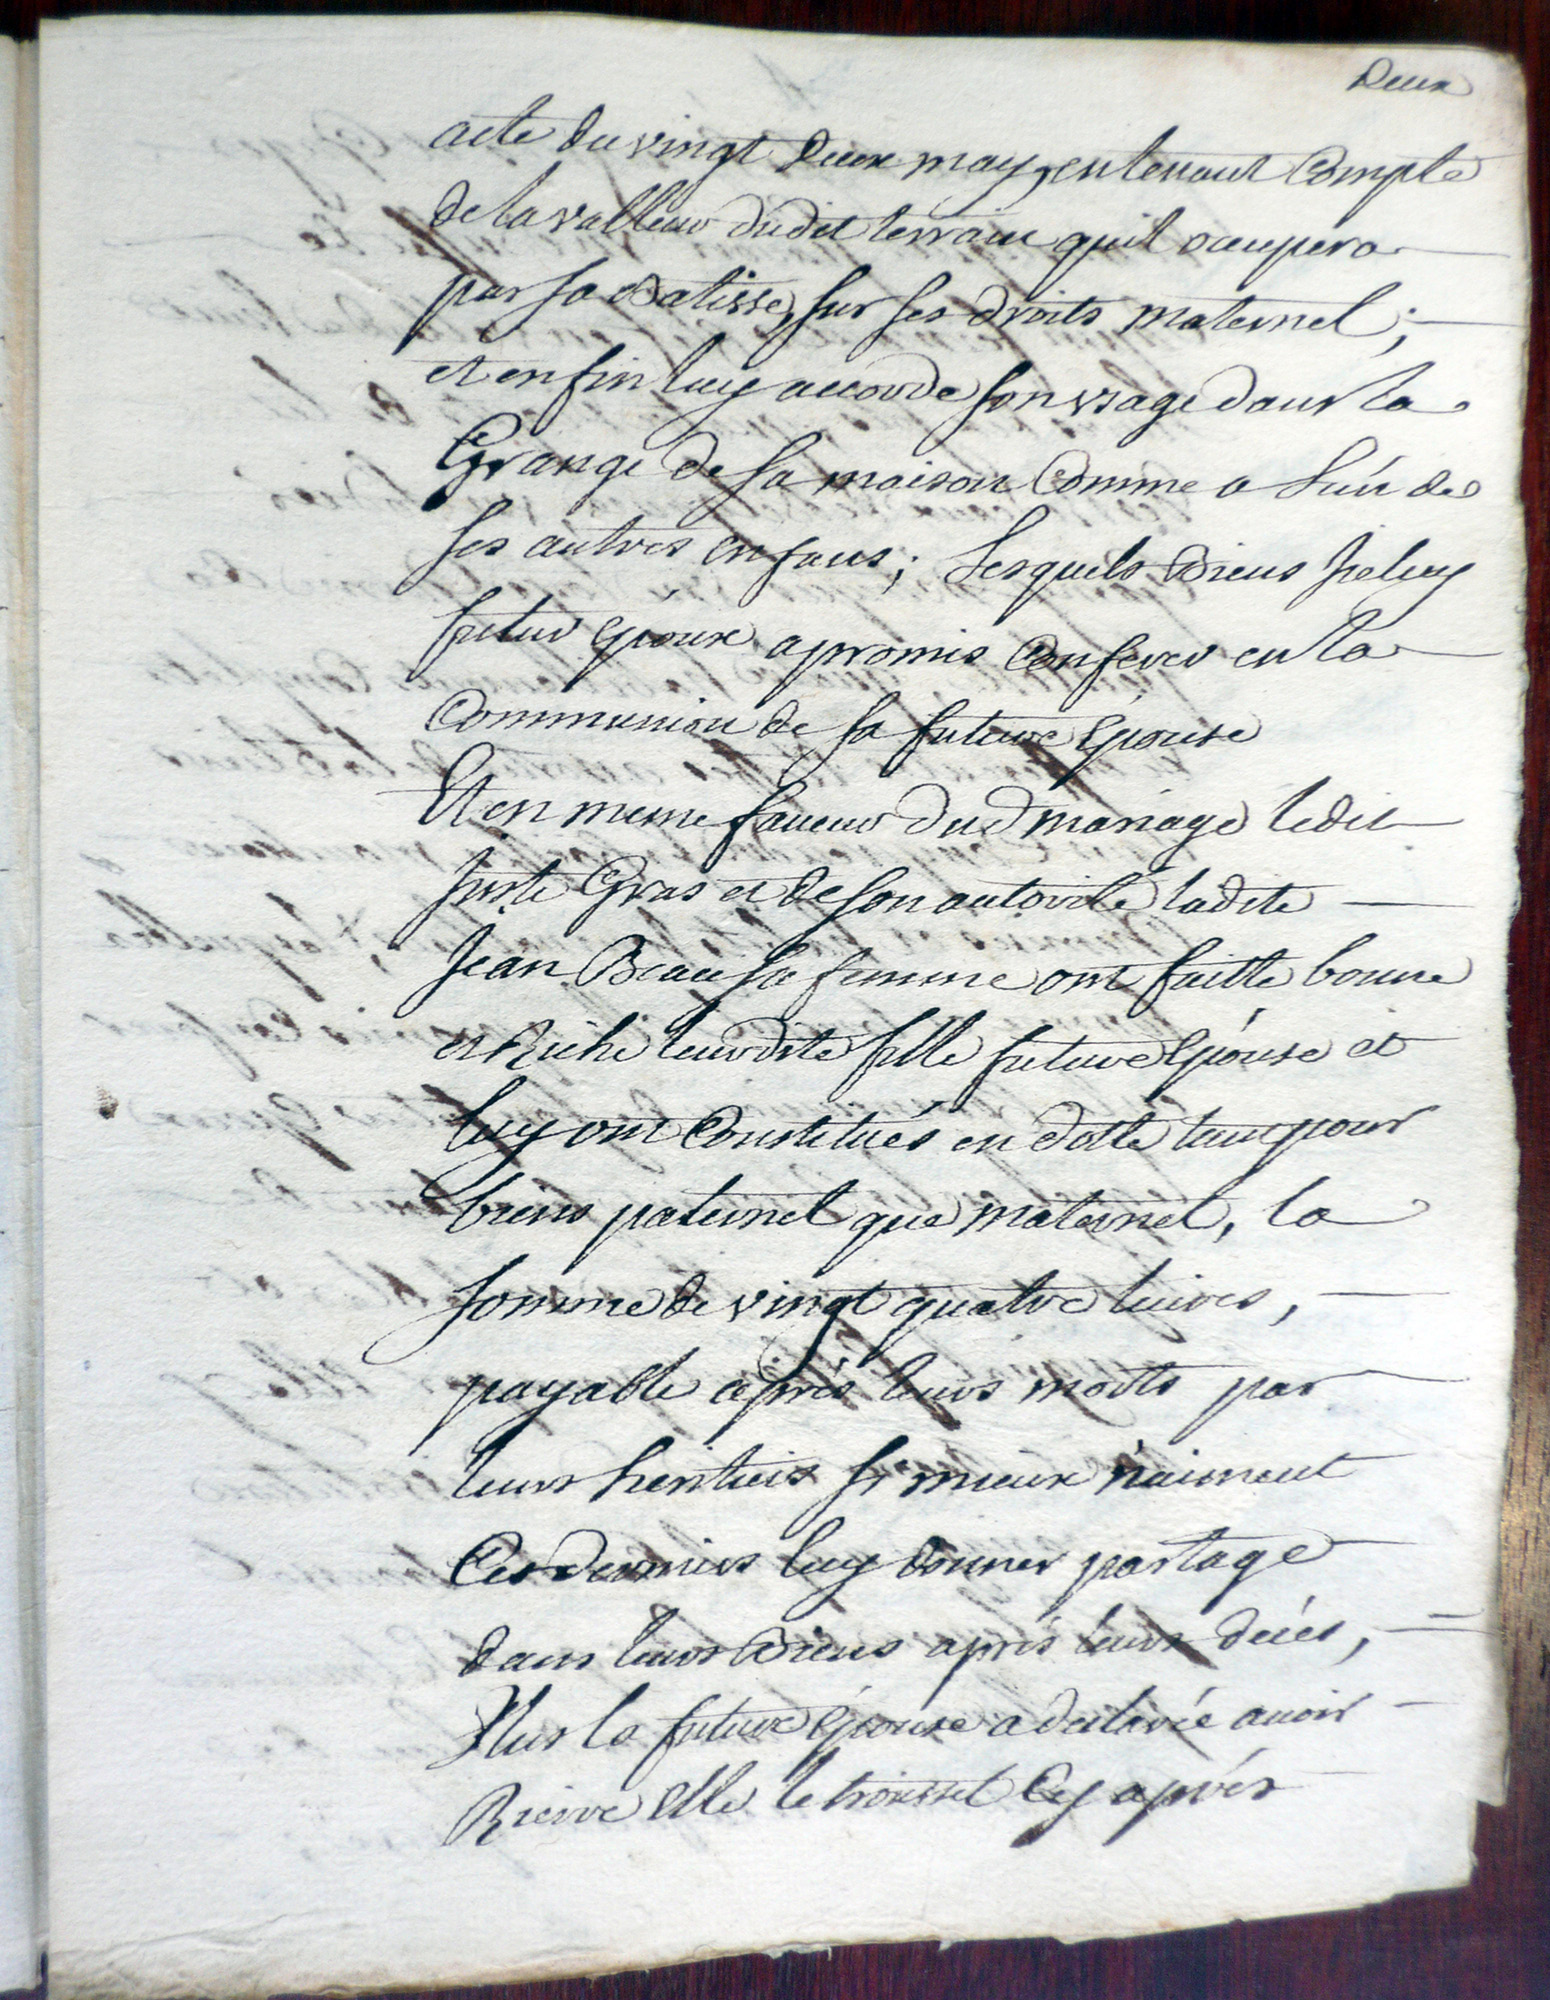 Deux
acte du vingt deux may, en tenant Compte
de la valleur dudit terrain quil ocupera
par sa Batisse, sur ses droits maternel;
et enfin luy accorde son usage dans la
Grange de sa maison Comme a l'un de
ses autres enfans; Lesquels Biens Iceluy
futur Epoux a promis Conferer en la
Communion de sa future Epouse
Et en meme faveur dud mariage ledit
Juste Gras et de son autorité ladite
Jean Beau sa femme ont faitte bonne
et Riche leurdite fille future Epouse et
luy ont Constitués en dotte tant pour
biens paternel que maternel, la
somme de vingt quatre livres,
payable après leurs morts par
leurs heritiers si mieux n'aiment
Ces derniers luy donner partage
dans leurs Biens après leurs decés,
Plus la future Epouse a declarée avoir
Riere elle le trousset Cy après